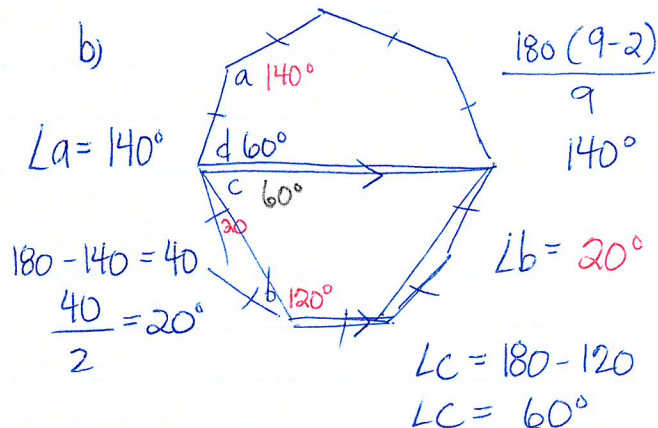 b)
180 (9-2)
9
140°
a 140°
∠a = 140°
d 60°
c 60°
20
180 - 140 = 40
40
2
= 20°
b 120°
∠b = 20°
∠c = 180 - 120
∠c = 60°